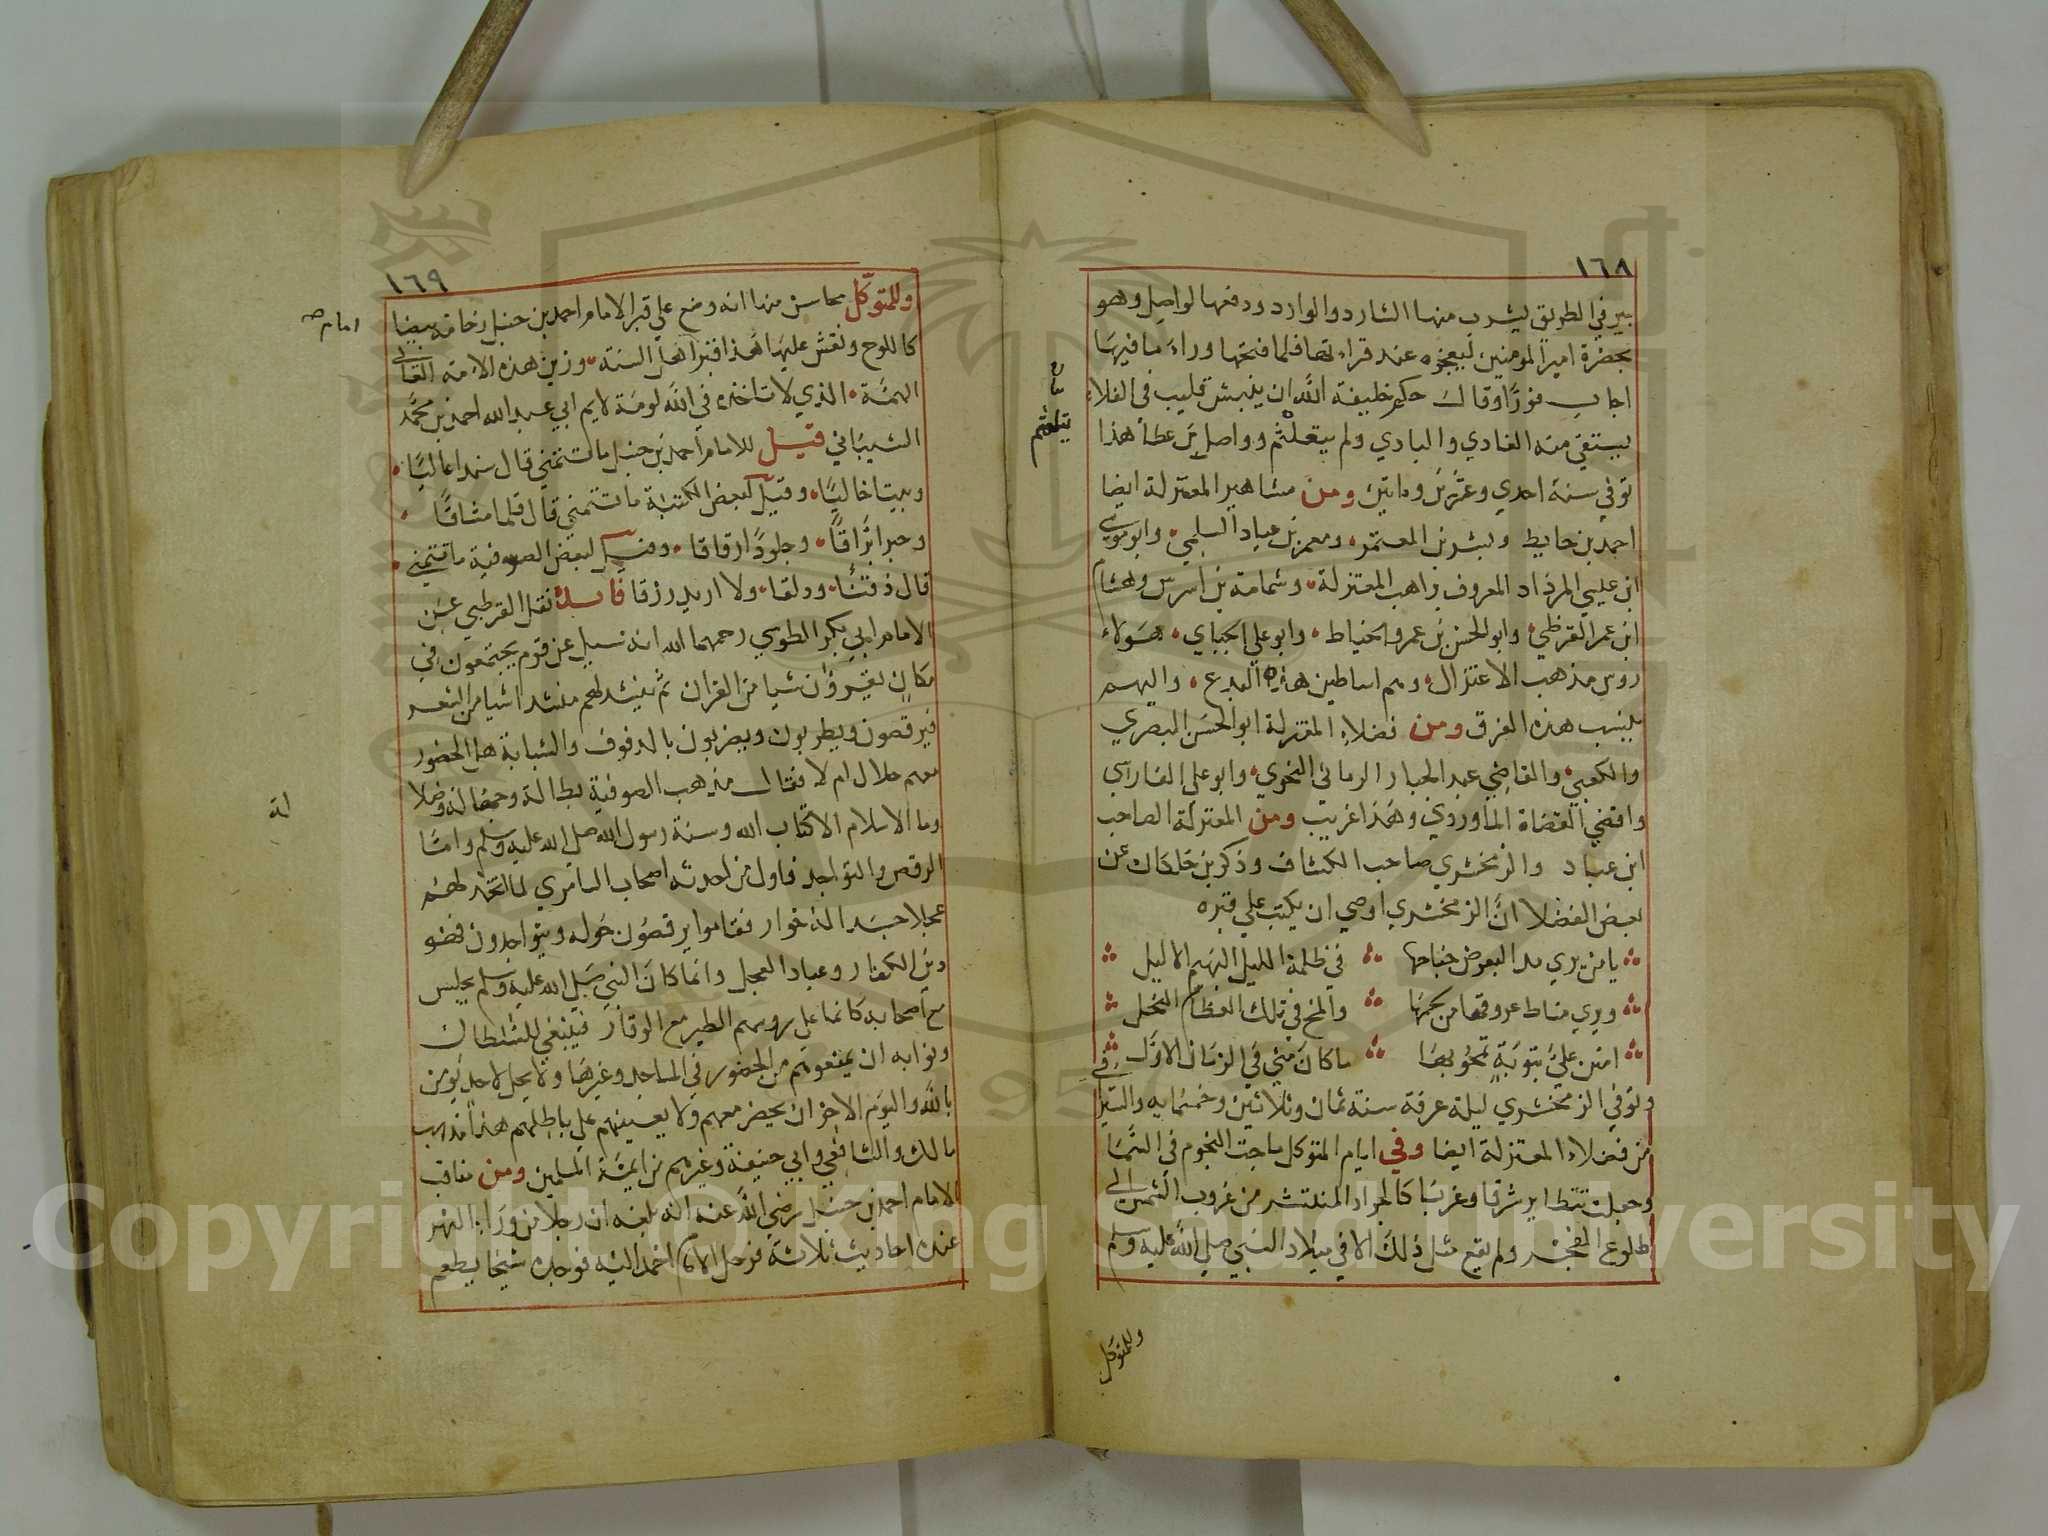 ١٦٨
بير في الطريق ليشرب منها الشارد والوارد ودفعها لواصل وهو
بحضرة امير المومنين ليعجزه عند قراتها فلما فتحها وراء ما فيها
اجاب فورًا وقال حكم خليفة الله ان ينبش قليب في الفلاء
يستقي منه الغادي والبادي ولم يتعلثم وواصل بن عطاء هذا
توفي سنة احدي وعشرين وماتين ومن مشاهير المعتزلة ايضا
احمد بن حايط وبشر بن المعتمر ومعمر بن عباد السلمي وابو موسى
ابن عليي المرداد المعروف براهب المعتزلة وثمامة بن اسرس وهشام
ابن عمر القرظي وابو الحسن بن عمرو الخياط وابو علي الجباي هولاء
روس مذهب الاعتزال وهم اساطين هذه البدع واليهم
ينسب هذه الفرق ومن فضلاء المعتزلة ابو الحسن البصري
والكعبي والقاضي عبد الجبار الرماني النحوي وابو علي الفارسي
واقضي القضاة الماوردي وهذا غريب ومن المعتزلة الصاحب
ابن عباد والزمخشري صاحب الكشاف وذكر بن خلكان عن
بعض الفضلا ان الزمخشري اوصي ان يكتب علي قبره
يا من يري مد البعوض جناحها في ظلمة الليل البهيم الاليل
ويري مناط عروقها من نحرها والمخ في تلك العظام النحل
امنن علي بتوبة تمحو بها ما كان مني في الزمان الاول
وتوفي الزمخشري ليلة عرفة سنة ثمان وثلاثين وخمسمايه والسيرافي
من فضلاء المعتزلة ايضا وفي ايام المتوكل ماجت النجوم في السما
وجعلت تتطاير شرقا وغربا كالجراد المنتشر من غروب الشمس الي
طلوع الفجر ولم يقع مثل ذلك الا في ميلاد النبي صلى الله عليه وسلم
وللمتوكل
يتلعثم
١٦٩
وللمتوكل محاسن منها انه وضع علي قبر الامام احمد بن حنبل رخامة بيضا
كاللوح ونقش عليها هذا قبر اهل السنة وزين هذه الامة العالي
الهمة الذي لا تاخذه في الله لومة لايم ابي عبد الله احمد بن محمد
الشيباني قيل للامام احمد بن حنبل ما تتمني قال سندا عاليًا
وبيتا خاليًا وقيل لبعض الكتبة ما تتمني قال قلما مشاقًا
وحبرا براقًا وجلودًا رقاقا وقيل لبعض الصوفية ما تتمني
قال ودلقا ولا اريد رزقا فايدة نقل القرطبي عن
الامام ابي بكر الطوسي رحمهما الله انه سيل عن قوم يجتمعون في
مكان يقرؤن شيا من القران ثم ينشد لهم منشد اشيا من الشعر
فيرقصون ويطربون ويضربون بالدفوف والشبابة هل الحضور
معهم حلال ام لا فقال مذهب الصوفية بطالة وجهالة وضلا
لة
وما الاسلام الا كتاب الله وسنة رسول الله صلى الله عليه وسلم واما
الرقص والتواجد فاول من احدثه اصحاب السامري لما اتخذ لهم
عجلا جسدا له خوار فقاموا يرقصون حوله ويتواجدون فهو
دين الكفار وعباد العجل وانما كان النبي صلى الله عليه وسلم يجلس
مع اصحابه كانما على روسهم الطير مع الوقار فينبغي للسلطان
ونوابه ان يمنعوهم من الحضور في المساجد وغيرها ولا يحل لاحد يومن
بالله واليوم الاخر ان يحضر معهم ولا يعينهم علي باطلهم هذا مذهب
مالك والشافعي وابي حنيفة وغيرهم من ايمة المسلمين ومن مناقب
الامام احمد بن حنبل رضي الله عنه انه بلغه ان رجلا من وراء النهر
عنده احاديث ثلاثة فرحل الامام احمد اليه فوجده شيخا يطعم
امام صح